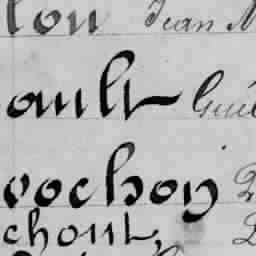 lou Jean M
ault Guil
vochon
chout,